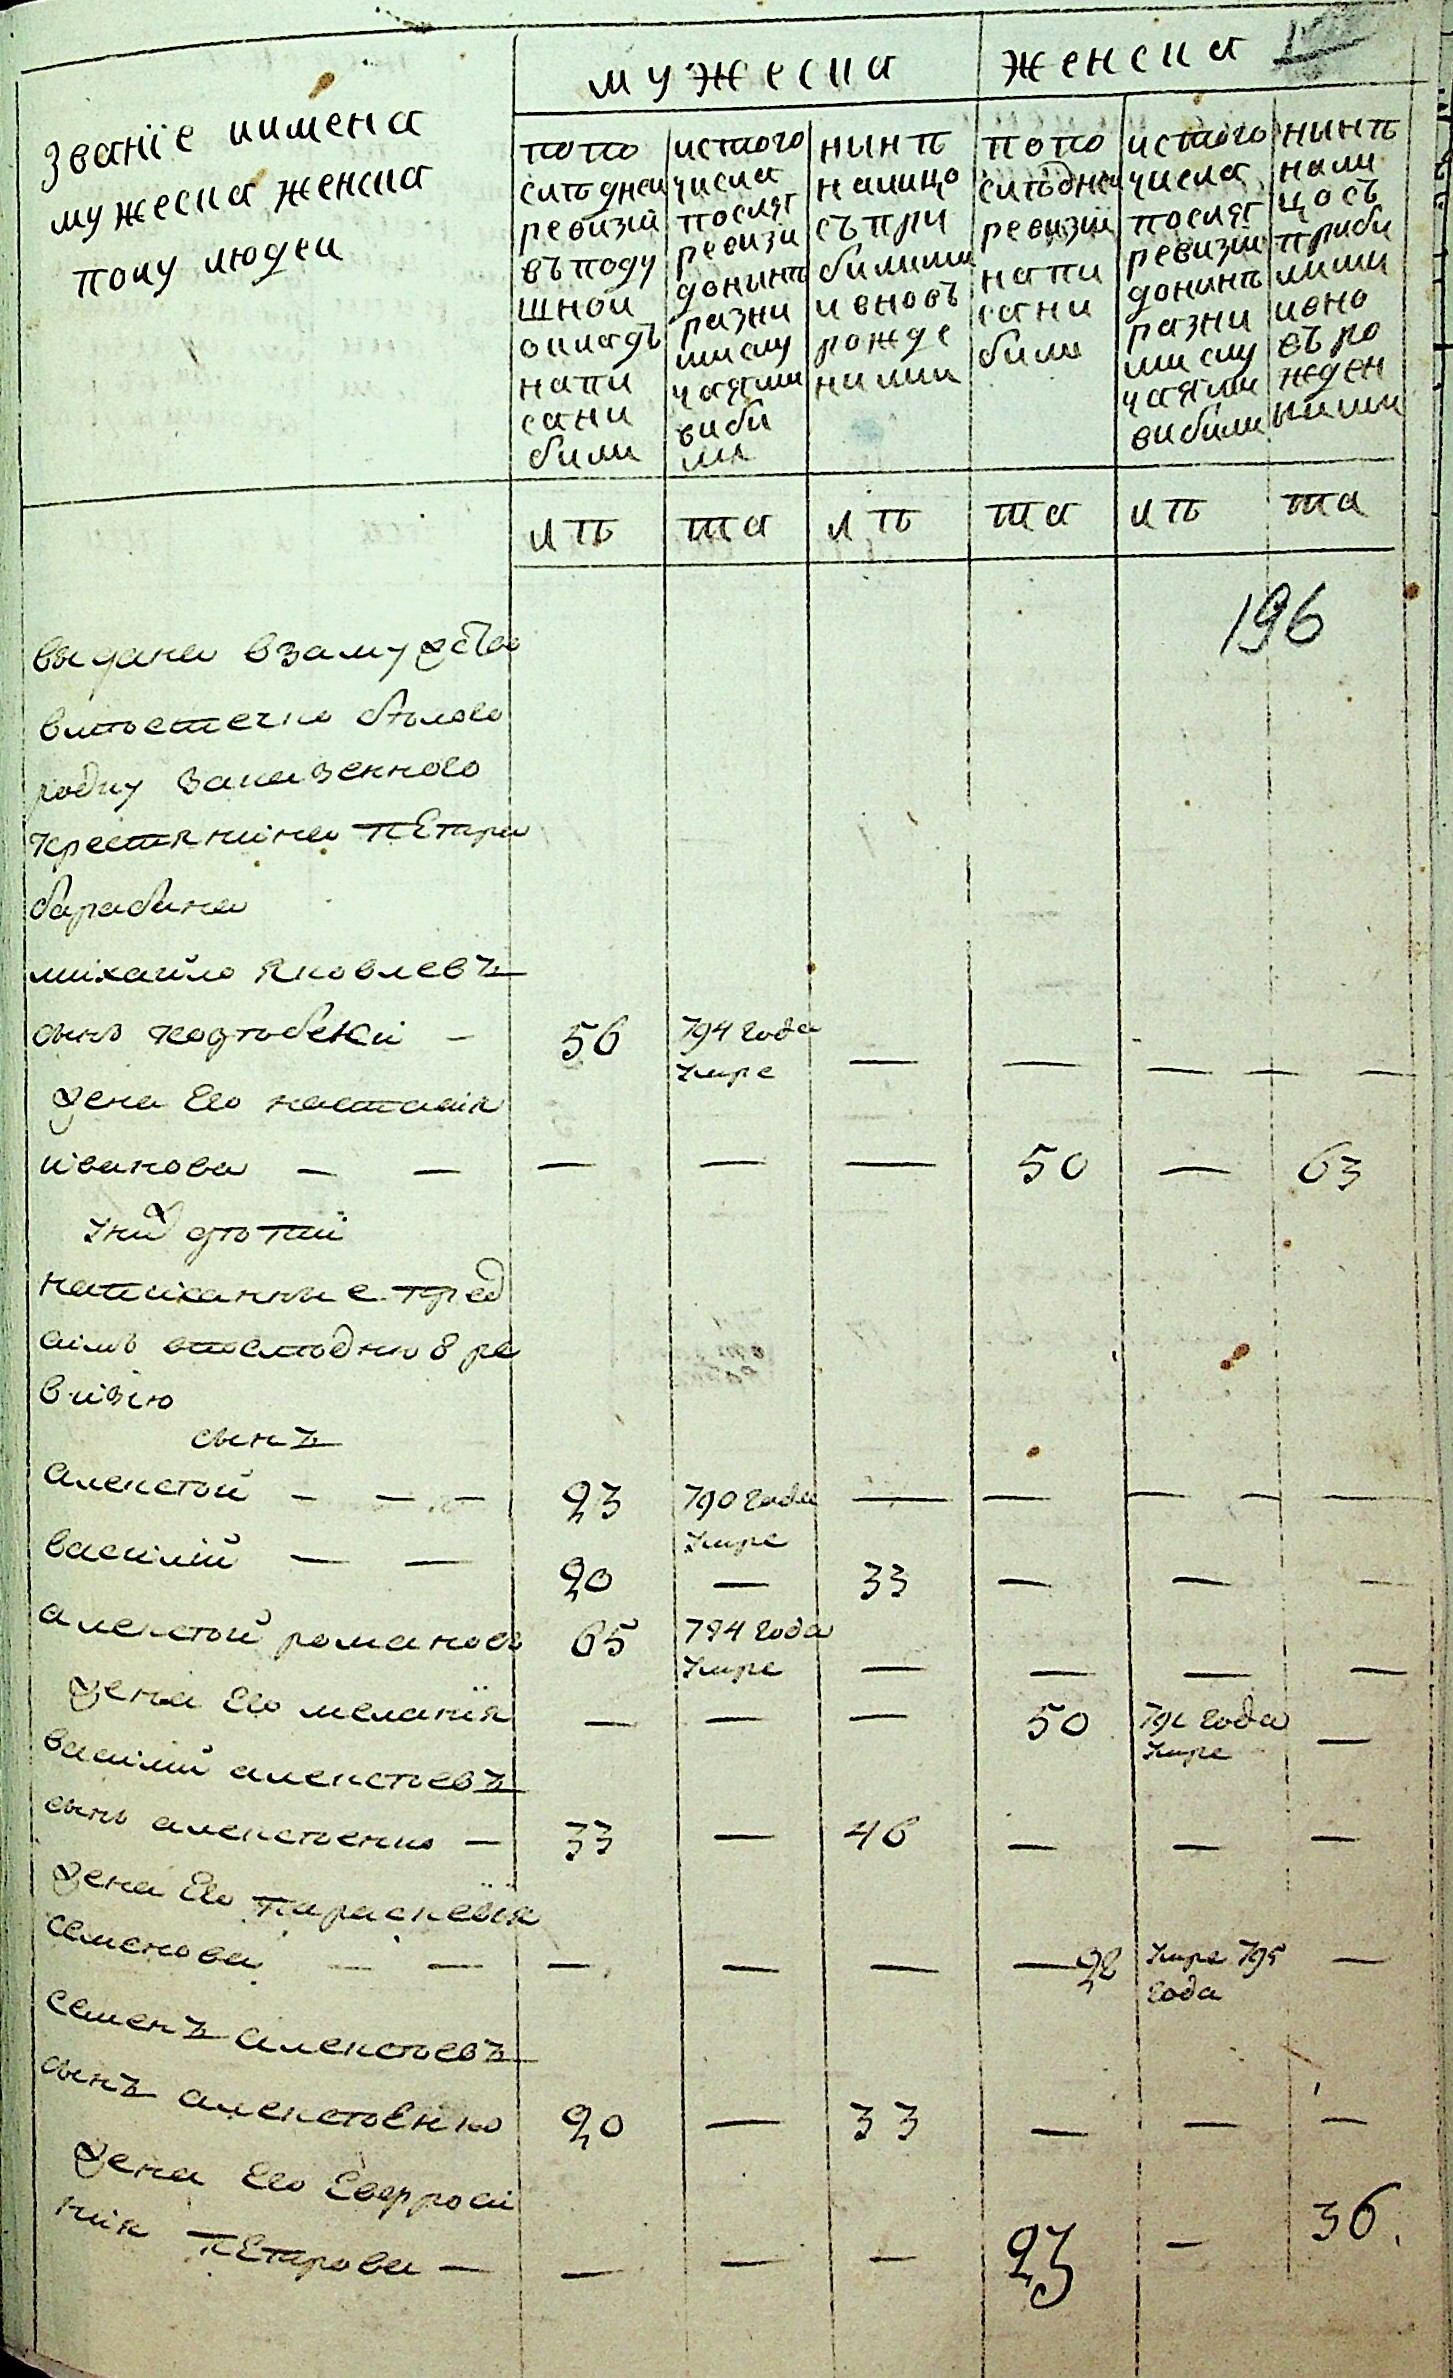 мужеска женска
званїе иимена
мужеска женска
полу людеи
попо
слѣднеи
ревизїи
въподу
шнои
окладъ
напи
сани
били
истого
числа
послѣ
ревизи
донынѣ
разни
ми слу
чаями
виби
ли
нынѣ
налицо
съ при
билими
и вновъ
рожде
ними
попо
слѣдней
ревизїи
напи
сани
били
истого
числа
послѣ
ревизїи
донынѣ
разни
ми слу
чаями
вибили
нынѣ
нали
цо съ
приби
лими
ивно
въ ро
жден
ними
лѣ та лѣ та лѣ та
196
выдана взамужство
вмѣстечко
казенного
крестянина пЕтра
барабана
михайло яковлевъ
сынъ 56 794 года
умре — — — — —
жена Его наталія
иванова — — — — — 50 — 63
уних дѣтий
написанные пред
симъ впослѣднюю ре
визїю
сынъ
алексѣй — — — 23 790 года — — — — —
умре
василїй — — 20 — 33 — — —
алексѣй романовъ 65 794 года
умре — — — —
жена Его меланїя — — — 50 791 года
умре —
василїй алексѣевъ
сынъ алексѣенко — 33 — 46 — — —
жена Его параскевїя
семенова — — — — — — 28 умре 795
года —
семенъ алексѣевъ
сынъ алексѣЕнко 20 — 33 — — —
жена Его Евфросі
нія пЕтрова — — — — 23 — 36